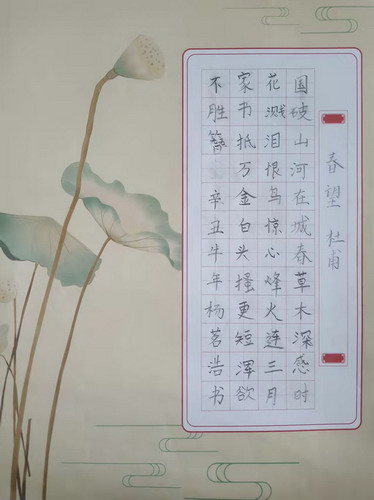 春望 杜甫
国破山河在城春草木深感时
花溅泪恨鸟惊心烽火连三月
家书抵万金白头搔更短浑欲
不胜簪 辛丑牛年杨茗浩书